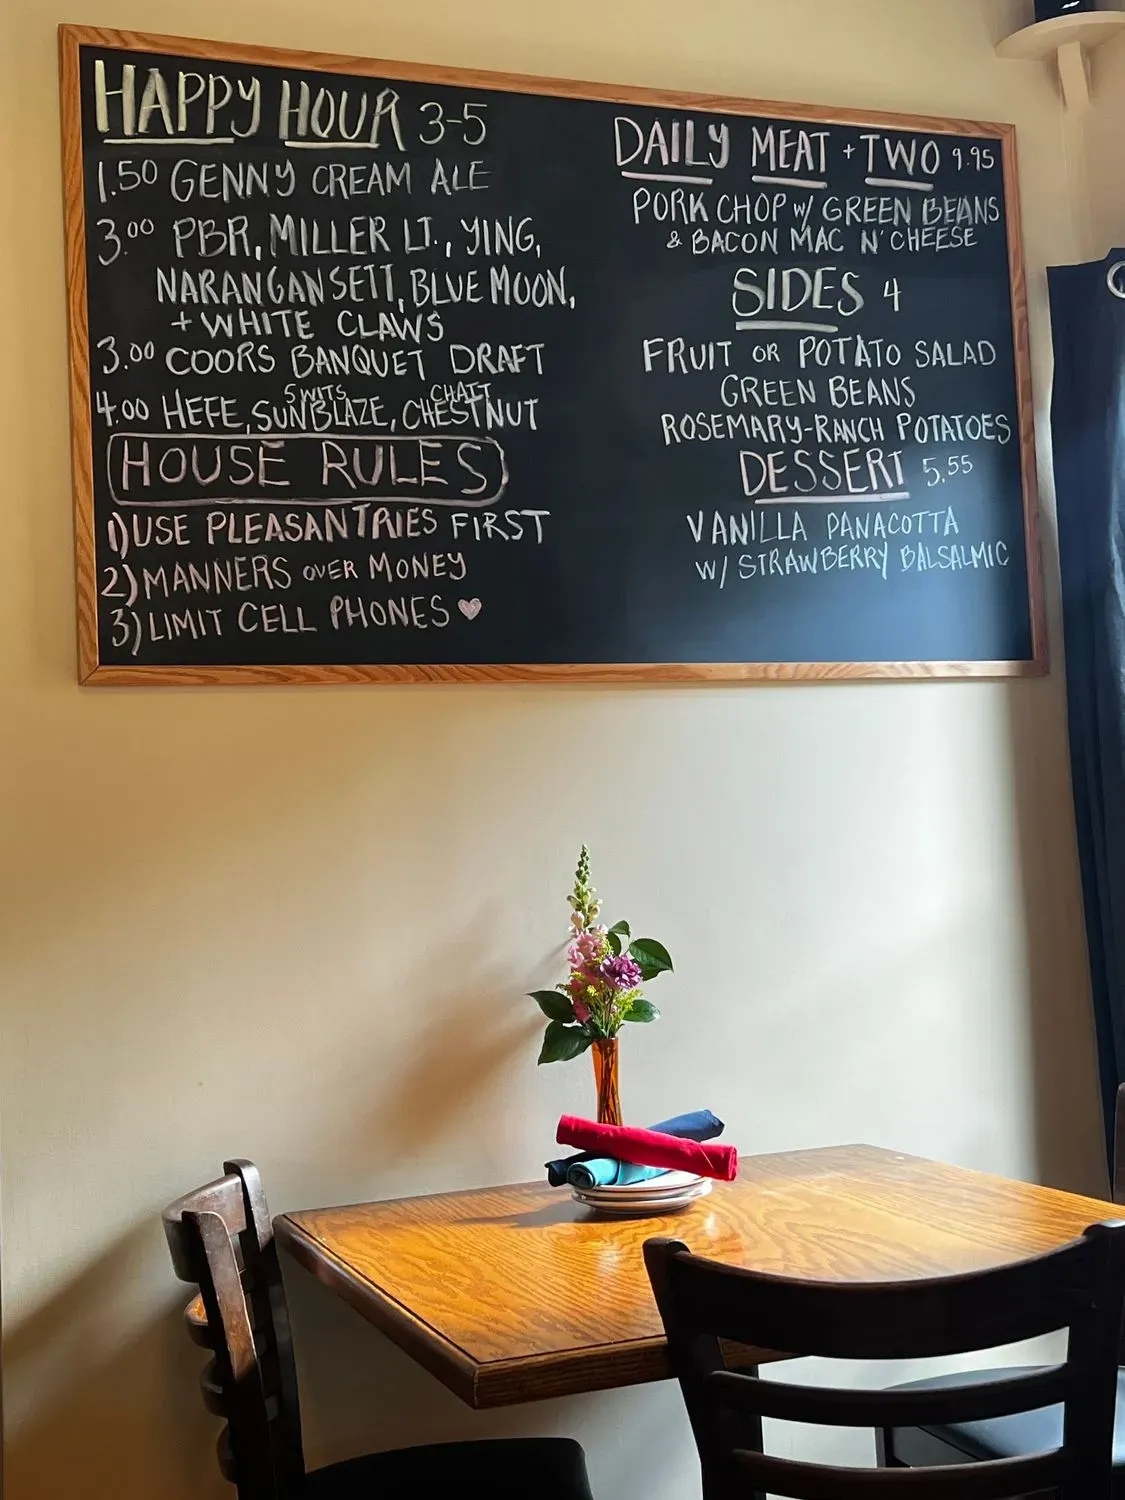 HAPPY HOUR 3-5
1.50 GENNY CREAM ALE
3.00 PBR, MILLER LT., YING,
NARANGANSETT, BLUE MOON,
+ WHITE CLAWS
3.00 COORS BANQUET DRAFT
SWITS CHATT
4.00 HEFE, SUNBLAZE, CHESTNUT
HOUSE RULES
1) USE PLEASANTRIES FIRST
2) MANNERS OVER MONEY
3) LIMIT CELL PHONES ♥
DAILY MEAT + TWO 9.95
PORK CHOP w/ GREEN BEANS
& BACON MAC N' CHEESE
SIDES 4
FRUIT OR POTATO SALAD
GREEN BEANS
ROSEMARY-RANCH POTATOES
DESSERT 5.55
VANILLA PANACOTTA
W/ STRAWBERRY BALSALMIC